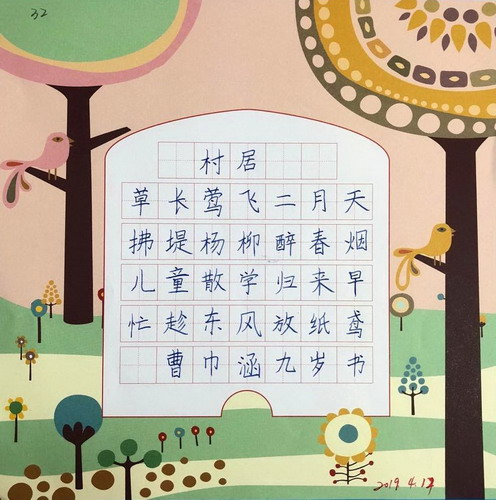 32
村居
草长莺飞二月天
拂堤杨柳醉春烟
儿童散学归来早
忙趁东风放纸鸢
曹巾涵九岁书
2019.4.17